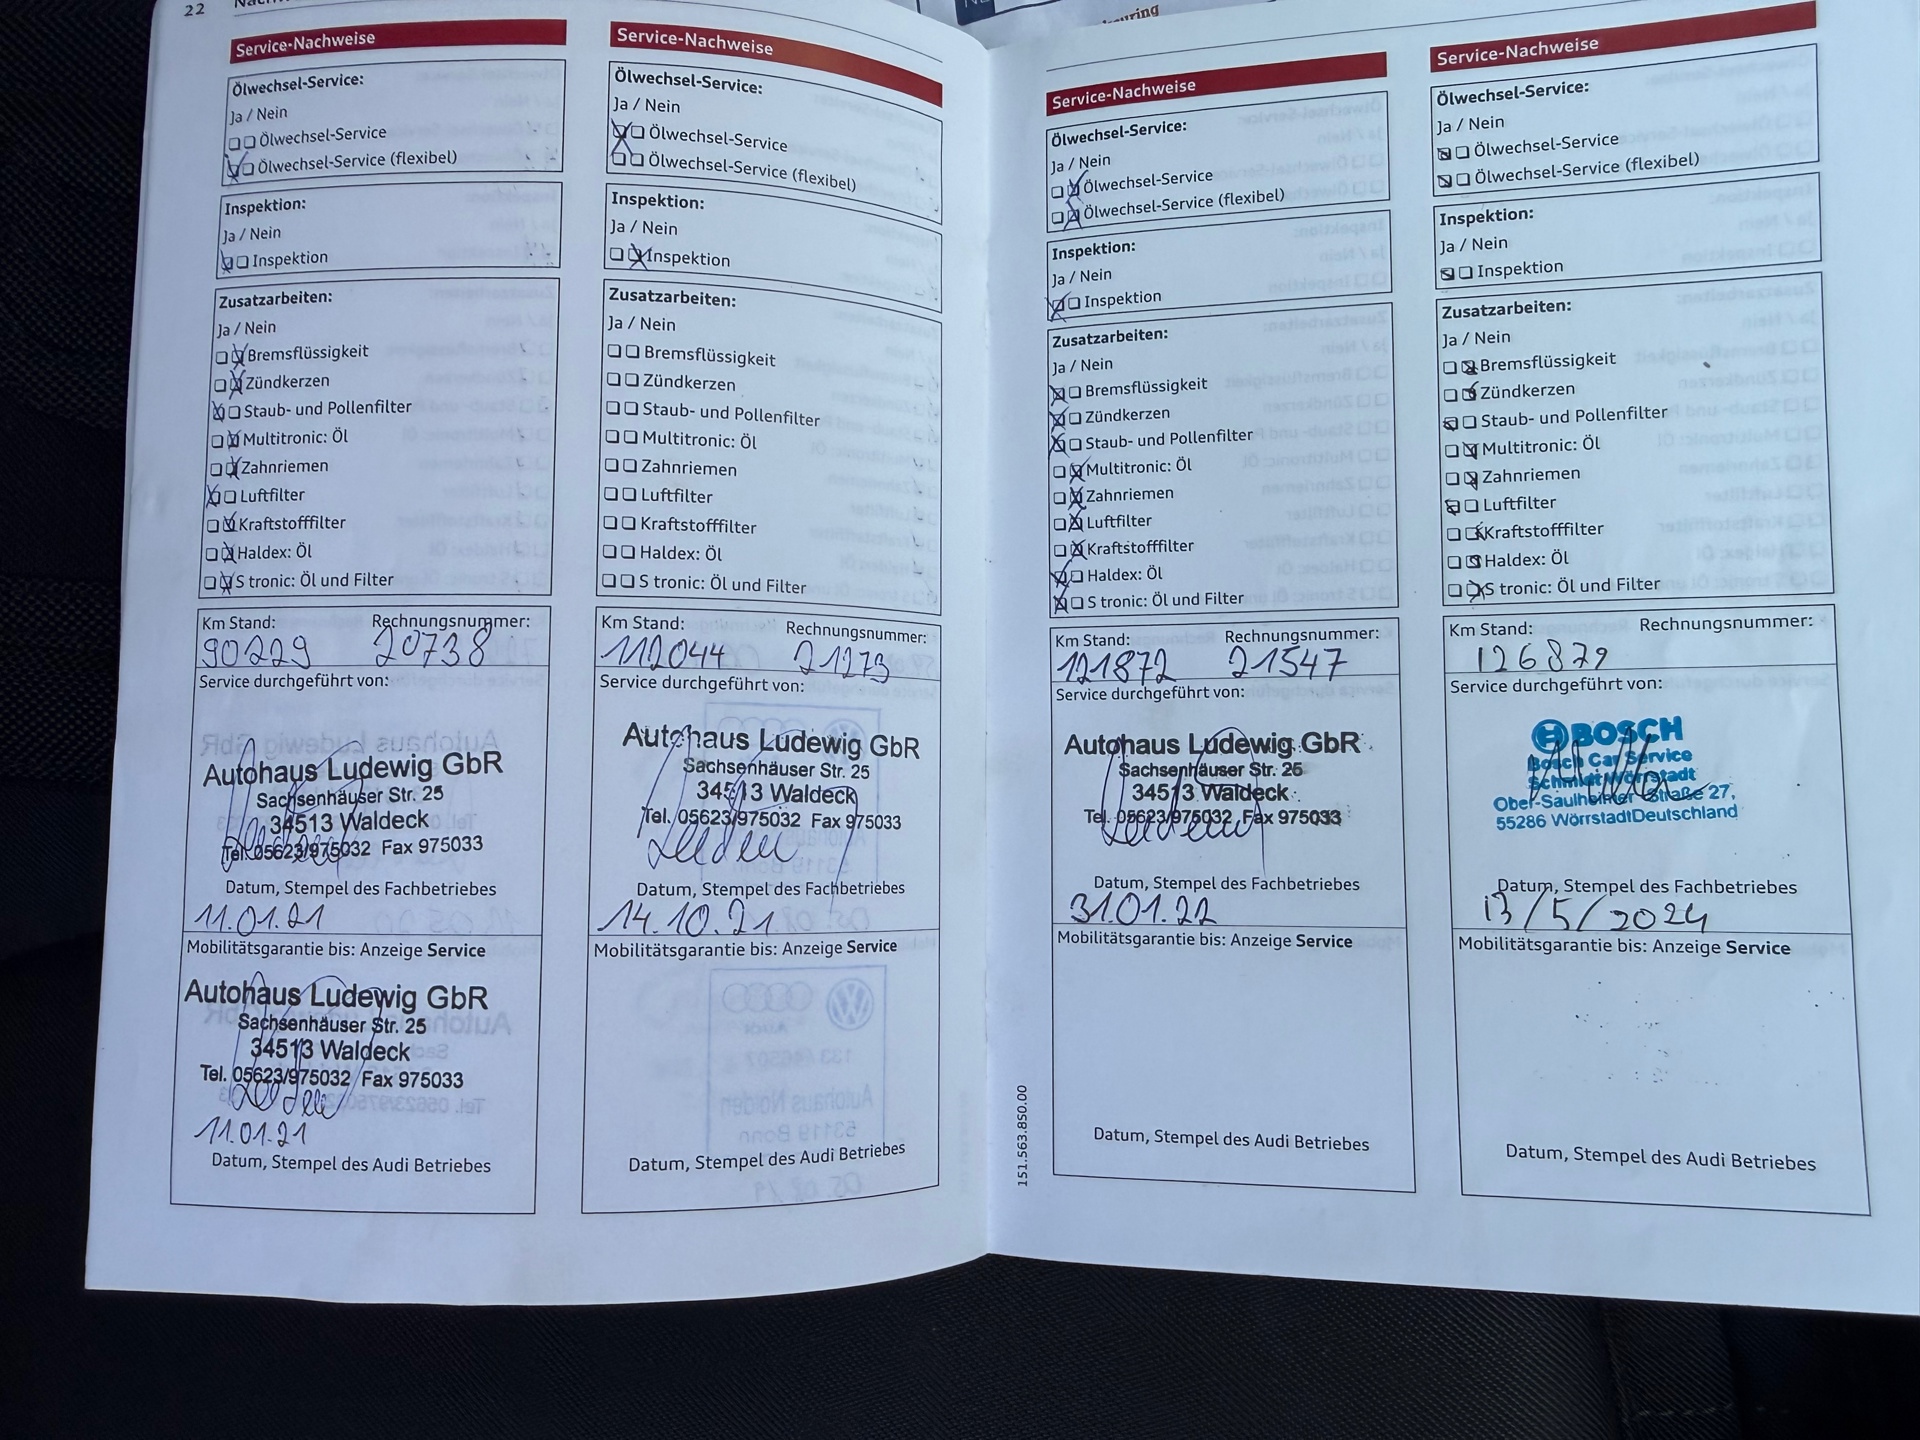 22
Service-Nachweise
Ölwechsel-Service:
Ja / Nein
Ölwechsel-Service
Ölwechsel-Service (flexibel)
Inspektion:
Ja / Nein
Inspektion
Zusatzarbeiten:
Ja / Nein
Bremsflüssigkeit
Zündkerzen
Staub- und Pollenfilter
Multitronic: Öl
Zahnriemen
Luftfilter
Kraftstofffilter
Haldex: Öl
S tronic: Öl und Filter
Km Stand: Rechnungsnummer:
90229 20738
Service durchgeführt von:
Autohaus Ludewig GbR
Sachsenhäuser Str. 25
34513 Waldeck
Tel. 05623/975032 Fax 975033
Datum, Stempel des Fachbetriebes
11.01.21
Mobilitätsgarantie bis: Anzeige Service
Autohaus Ludewig GbR
Sachsenhäuser Str. 25
34513 Waldeck
Tel. 05623/975032 Fax 975033
11.01.21
Datum, Stempel des Audi Betriebes
Service-Nachweise
Ölwechsel-Service:
Ja / Nein
Ölwechsel-Service
Ölwechsel-Service (flexibel)
Inspektion:
Ja / Nein
Inspektion
Zusatzarbeiten:
Ja / Nein
Bremsflüssigkeit
Zündkerzen
Staub- und Pollenfilter
Multitronic: Öl
Zahnriemen
Luftfilter
Kraftstofffilter
Haldex: Öl
S tronic: Öl und Filter
Km Stand: Rechnungsnummer:
112044 21273
Service durchgeführt von:
Autohaus Ludewig GbR
Sachsenhäuser Str. 25
34513 Waldeck
Tel. 05623/975032 Fax 975033
Datum, Stempel des Fachbetriebes
14.10.21
Mobilitätsgarantie bis: Anzeige Service
Datum, Stempel des Audi Betriebes
Service-Nachweise
Ölwechsel-Service:
Ja / Nein
Ölwechsel-Service
Ölwechsel-Service (flexibel)
Inspektion:
Ja / Nein
Inspektion
Zusatzarbeiten:
Ja / Nein
Bremsflüssigkeit
Zündkerzen
Staub- und Pollenfilter
Multitronic: Öl
Zahnriemen
Luftfilter
Kraftstofffilter
Haldex: Öl
S tronic: Öl und Filter
Km Stand: Rechnungsnummer:
121872 21547
Service durchgeführt von:
Autohaus Ludewig GbR
Sachsenhäuser Str. 25
34513 Waldeck
Tel. 05623/975032 Fax 975033
Datum, Stempel des Fachbetriebes
31.01.22
Mobilitätsgarantie bis: Anzeige Service
Datum, Stempel des Audi Betriebes
151.563.850.00
Service-Nachweise
Ölwechsel-Service:
Ja / Nein
Ölwechsel-Service
Ölwechsel-Service (flexibel)
Inspektion:
Ja / Nein
Inspektion
Zusatzarbeiten:
Ja / Nein
Bremsflüssigkeit
Zündkerzen
Staub- und Pollenfilter
Multitronic: Öl
Zahnriemen
Luftfilter
Kraftstofffilter
Haldex: Öl
S tronic: Öl und Filter
Km Stand: Rechnungsnummer:
126879
Service durchgeführt von:
BOSCH
Bosch Car Service
Schmidt Wörrstadt
Ober-Saulheimer Straße 27,
55286 WörrstadtDeutschland
Datum, Stempel des Fachbetriebes
13/5/2024
Mobilitätsgarantie bis: Anzeige Service
Datum, Stempel des Audi Betriebes